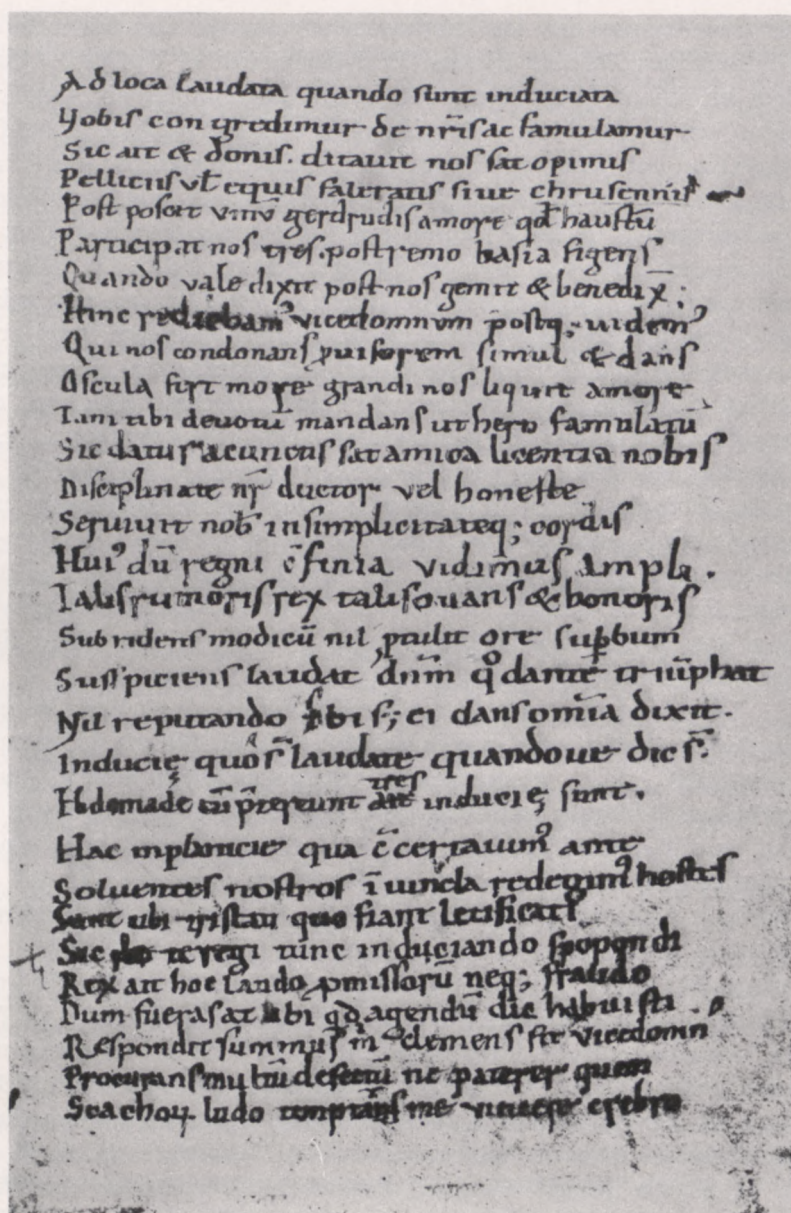 Ad loca laudata quando sunt induciata
Vobis congredimur de nr̄is ac famulamur
Sic ait & donis. ditauit nos sat opimis
Pelliciis vł equis faleratis siue chrusennis
Post poscit vinū gerdrudis amore qđ haustū
Participat nos tres. postremo basia figens
Quando vale dixit post nos gemit & benedix̄;
Hinc vicedomnum postq; uidem᾽
Qui nos condonans simul & dans
Oscula fert more grandi nos liquit amore
Tam tibi deuotū mandans ut hero famulatū
Sic datur a cunctis sat amica licentia nobis
Disciplinate nr̄ ductor vel honeste
Seruiuit nob̄ in simplicitateq; cordis
Hui᾽ dū regni cfinia vidimus ampli.
Talis rumoris rex talis ouans & honoris
Subridens modicū nil ptulit ore supbum
Suspiciens laudat dnm qͦ dante triūphat
Nil reputando sibi s; ei dans omīa dixit.
Inducię quo s̄ laudate quandoue dic s̄.
Ebdomadę tres induciȩ sunt.
Hac inplanicie qua c̄certauim᾽ ante
Soluentes nostros ī uincla redegim᾽ hostes
Sunt ubi tristati quo fiant letificati
Sic te regi tunc induciando spopondi
Rex ait hoc laudo pmissorū neq; fraudo
Dum fueras at ubi qđ agendū die habuisti
Respondit summus m̄ clemens fit vicedomn᾽
Procurans multū defectū ne paterer quem
Scachoꝝ ludo temptans me uincere crebro